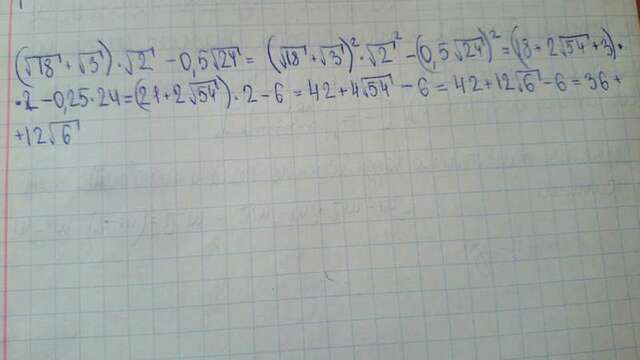 (√18 + √3) · √2 - 0,5√24 = (√18 + √3)² · √2² - (0,5√24)² = (18 + 2√54 + 3) ·
· 2 - 0,25 · 24 = (21 + 2√54) · 2 - 6 = 42 + 4√54 - 6 = 42 + 12√6 - 6 = 36 +
+ 12√6